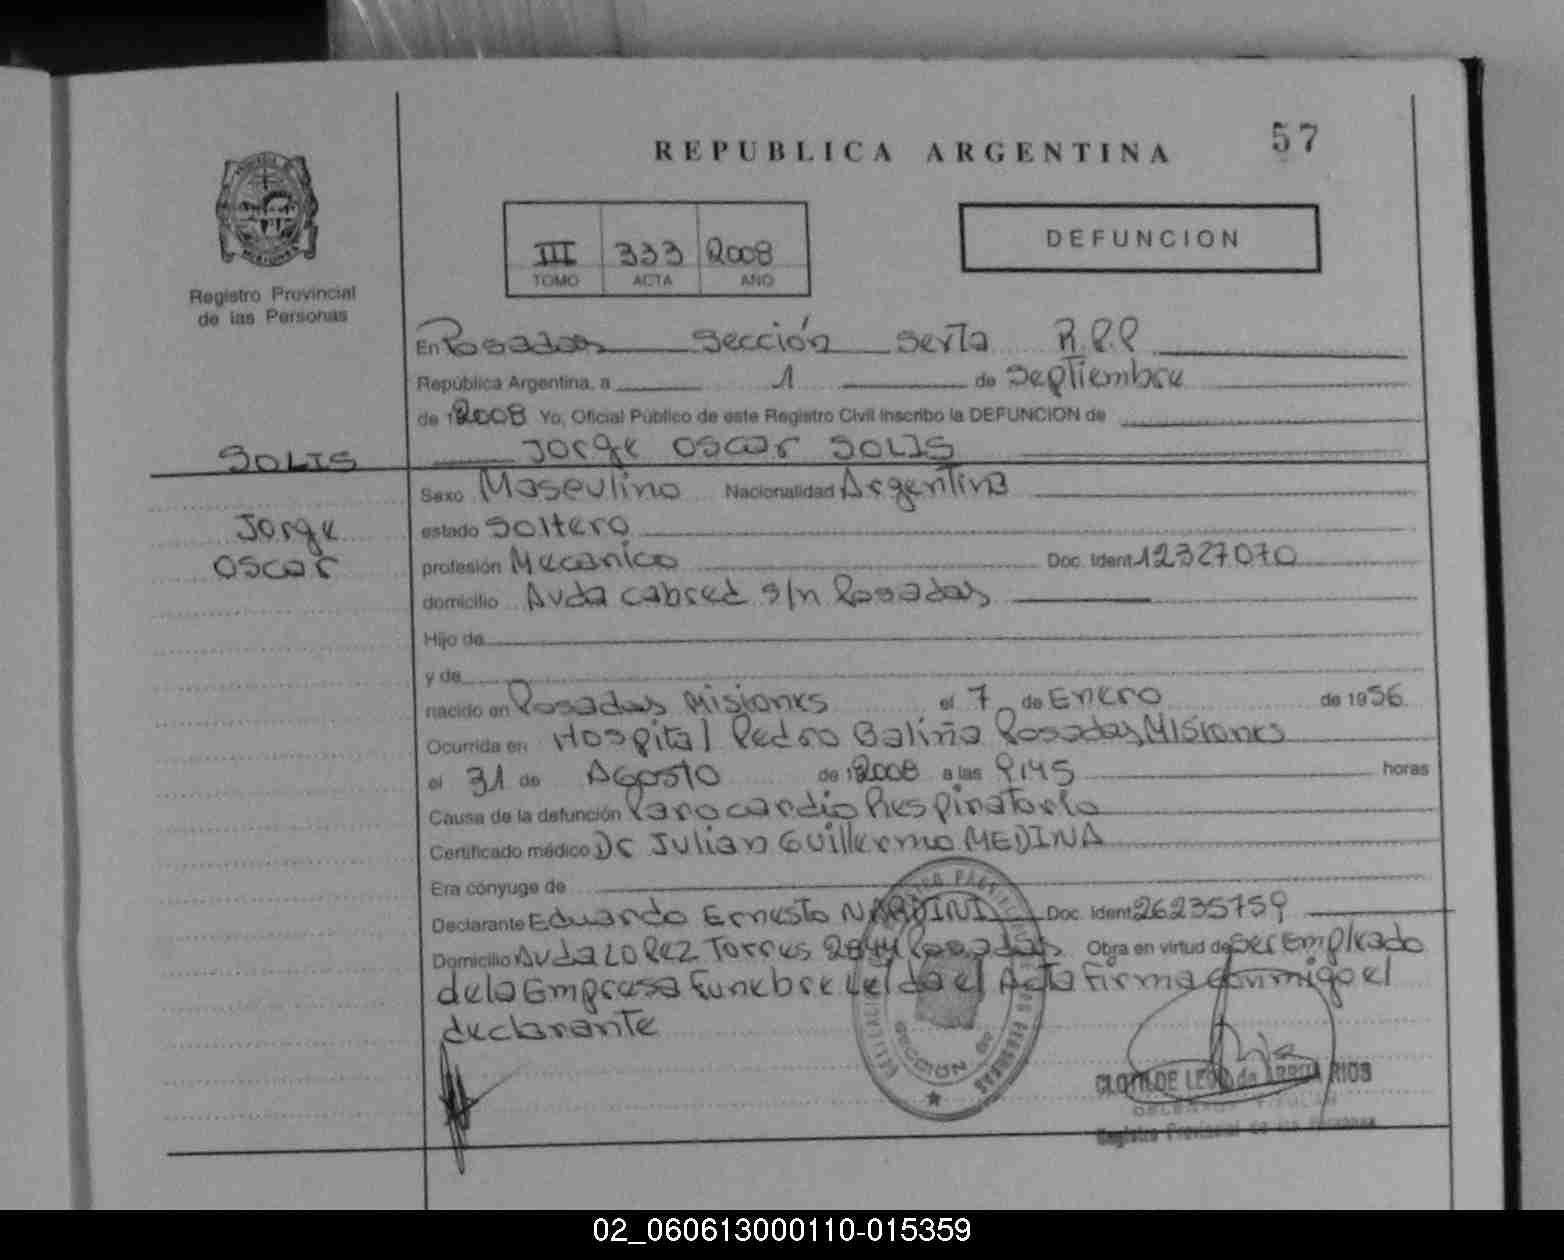 REPUBLICA ARGENTINA
57
III 333 2008
TOMO ACTA AÑO
DEFUNCION
Registro Provincial
de las Personas
En Posadas Sección Sexta R.P.P
República Argentina, a 1 de Septiembre
de 2008 Yo, Oficial Público de este Registro Civil inscribo la DEFUNCION de
SOLIS
Jorge Oscar SOLIS
Sexo Masculino Nacionalidad Argentina
Jorge
estado Soltero
Oscar
profesión Mecanico Doc. Ident. 12327070
domicilio Avda Cabred s/n Posadas
Hijo de
y de
nacido en Posadas Misiones el 7 de Enero de 1956
Ocurrida en Hospital Pedro Baliña Posadas, Misiones
el 31 de Agosto de 2008 a las 9:45 horas
Causa de la defunción Parocardio Respiratorio
Certificado médico Dr Julian Guillermo MEDINA
Era cónyuge de
Declarante Eduardo Ernesto NARDINI Doc. Ident. 26235759
Domicilio Avda Lopez Torres 2844 Posadas Obra en virtud de ser Empleado
de la Empresa Funebre Leida el Acta Firma conmigo el
declarante
SECCION
CLOTILDE
Registro Provincial de las Personas
02_060613000110-015359